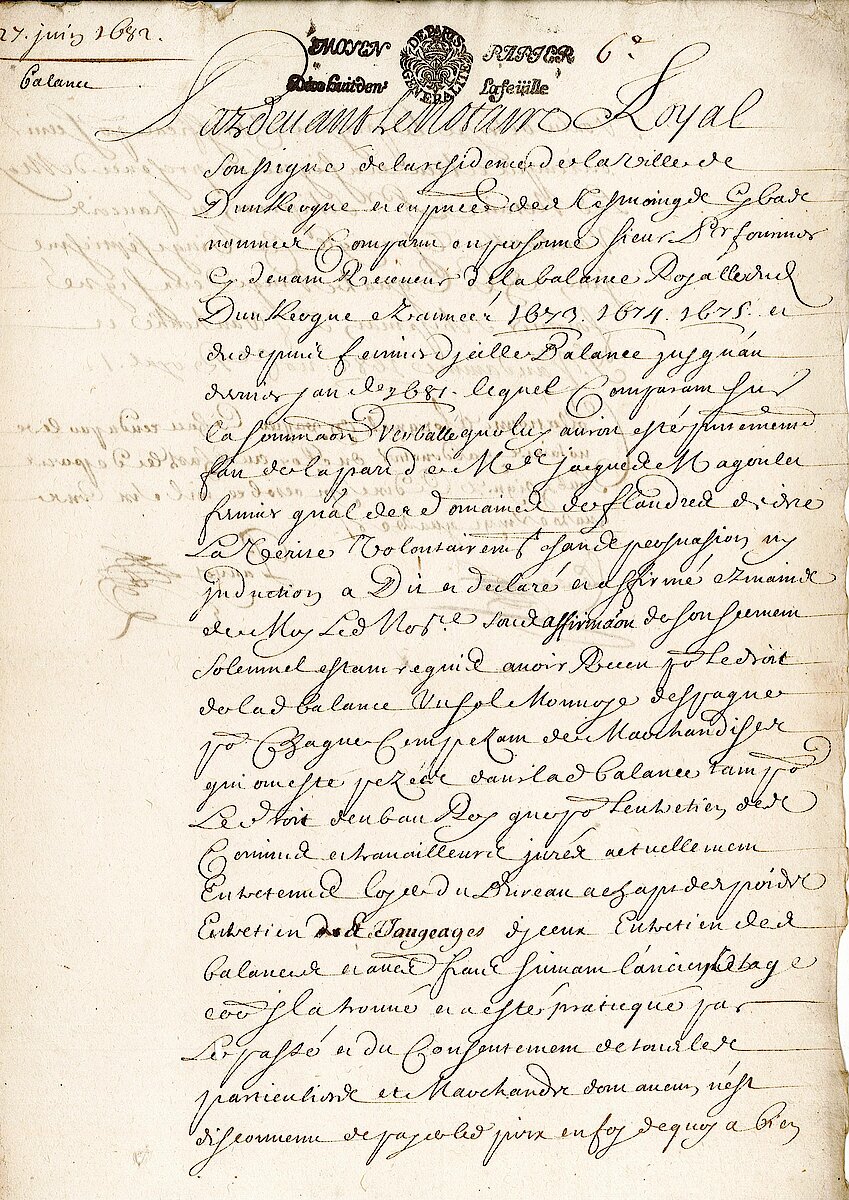 27. juin 1682.
balance
MOYEN PAPIER 6e
GENERALITE DE PARIS
Dix huit den.s La feüille
Pardevant Le Notaire Royal
Soussigné de la residence de la Ville de
Dunkerque et en pnce des Tesmoins Cy bas
nommez Comparu en personne sieur fournier
Cy devant Receveur de la balance Royalle dud
Dunkerque ez années 1673. 1674. 1675. et
depuis fermier d jcelle Balance jusqu'au
dernier jan de 1681. lequel Comparant sur
la sommaon Verballe quoluy auroit esté
fait de la part de Me Jacques de Magoulet
fermier gnal des domaines de flandres de dire
La Verité Volontairemt sans persuasion ny
jnduction a Dit et declaré et affirmé ez mains
de Moy Led Not.re soubs affirmaon de son serment
solemnel estant requis avoir Receu po Le droit
de lad balance Un sol Monnoye despagne
po Chaque Cent pezant de Marchandises
qui ont esté pezées dans lad balance tant po
Le droit deu bau Roy que po L'entretien des
Commis et travailleurs jurés actuellement
Entretenus loyer du Bureau achapt des poids
Entretien de Jaugeages d jceux Entretien des
balances et suivant l'ancien
jl a trouvé et a esté pratiqué par
Le passé et du Consentement de tous les
particuliers et Marchands dont aucun n'est
disconvenu de payer led prix en foy de quoy a bien